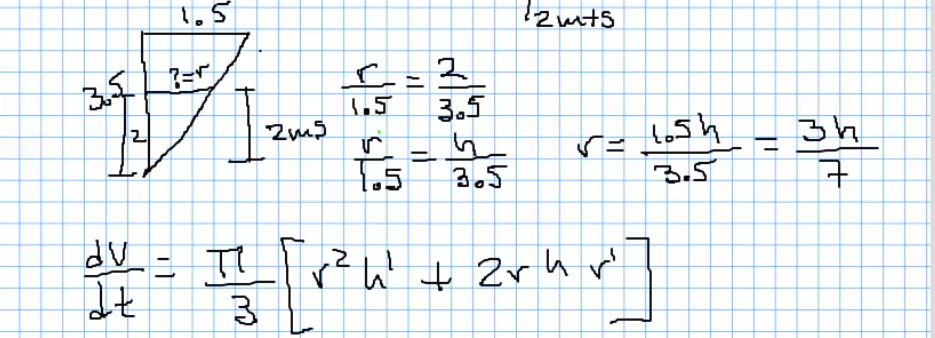 1.5
2mts
3.5
?=r
2
2ms
r/1.5 = 2/3.5
r/1.5 = h/3.5
r = 1.5h/3.5 = 3h/7
dV/dt = π/3 [r² h' + 2r h r']